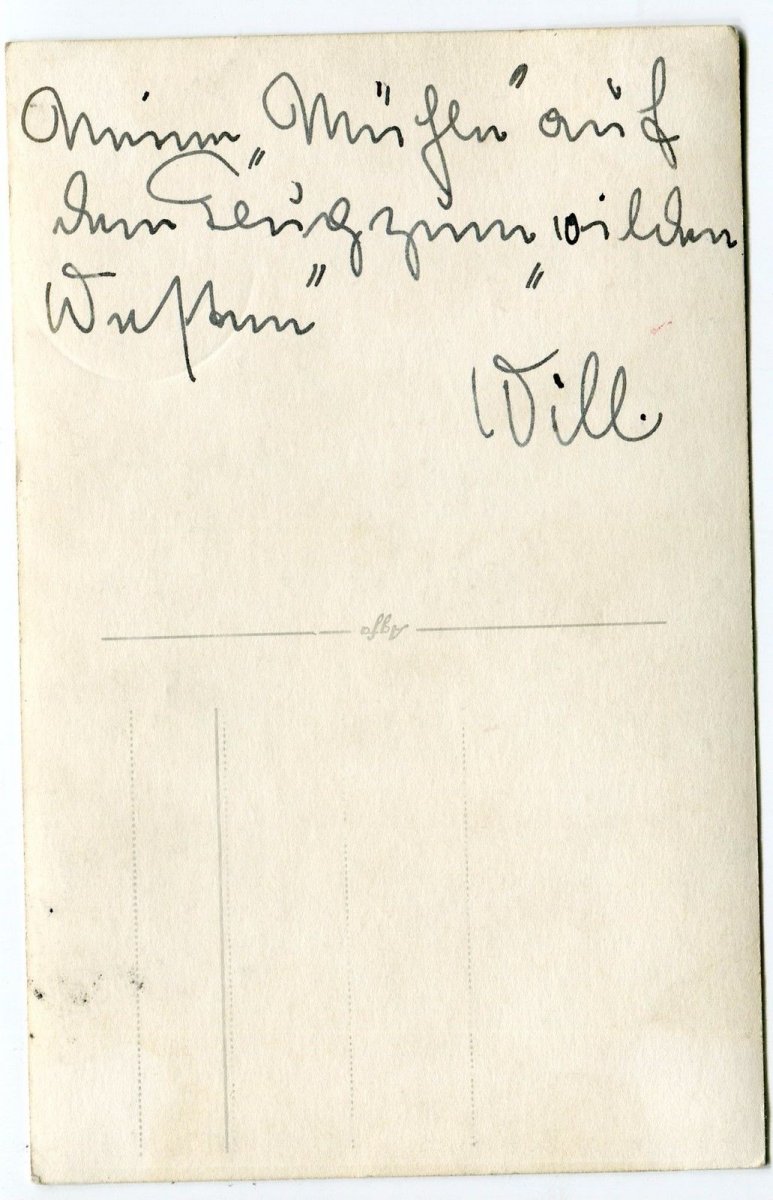 Meine „Mühle" auf
dem Flug zum „wilden
Westen"
Will.
Agfa